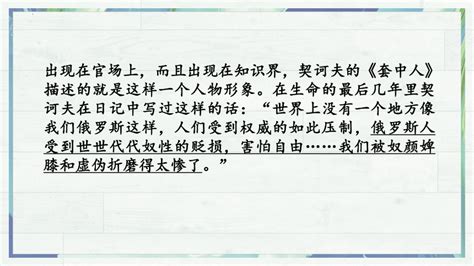 出现在官场上，而且出现在知识界，契诃夫的《套中人》
描述的就是这样一个人物形象。在生命的最后几年里契
诃夫在日记中写过这样的话：“世界上没有一个地方像
我们俄罗斯这样，人们受到权威的如此压制，俄罗斯人
受到世世代代奴性的贬损，害怕自由……我们被奴颜婢
膝和虚伪折磨得太惨了。”